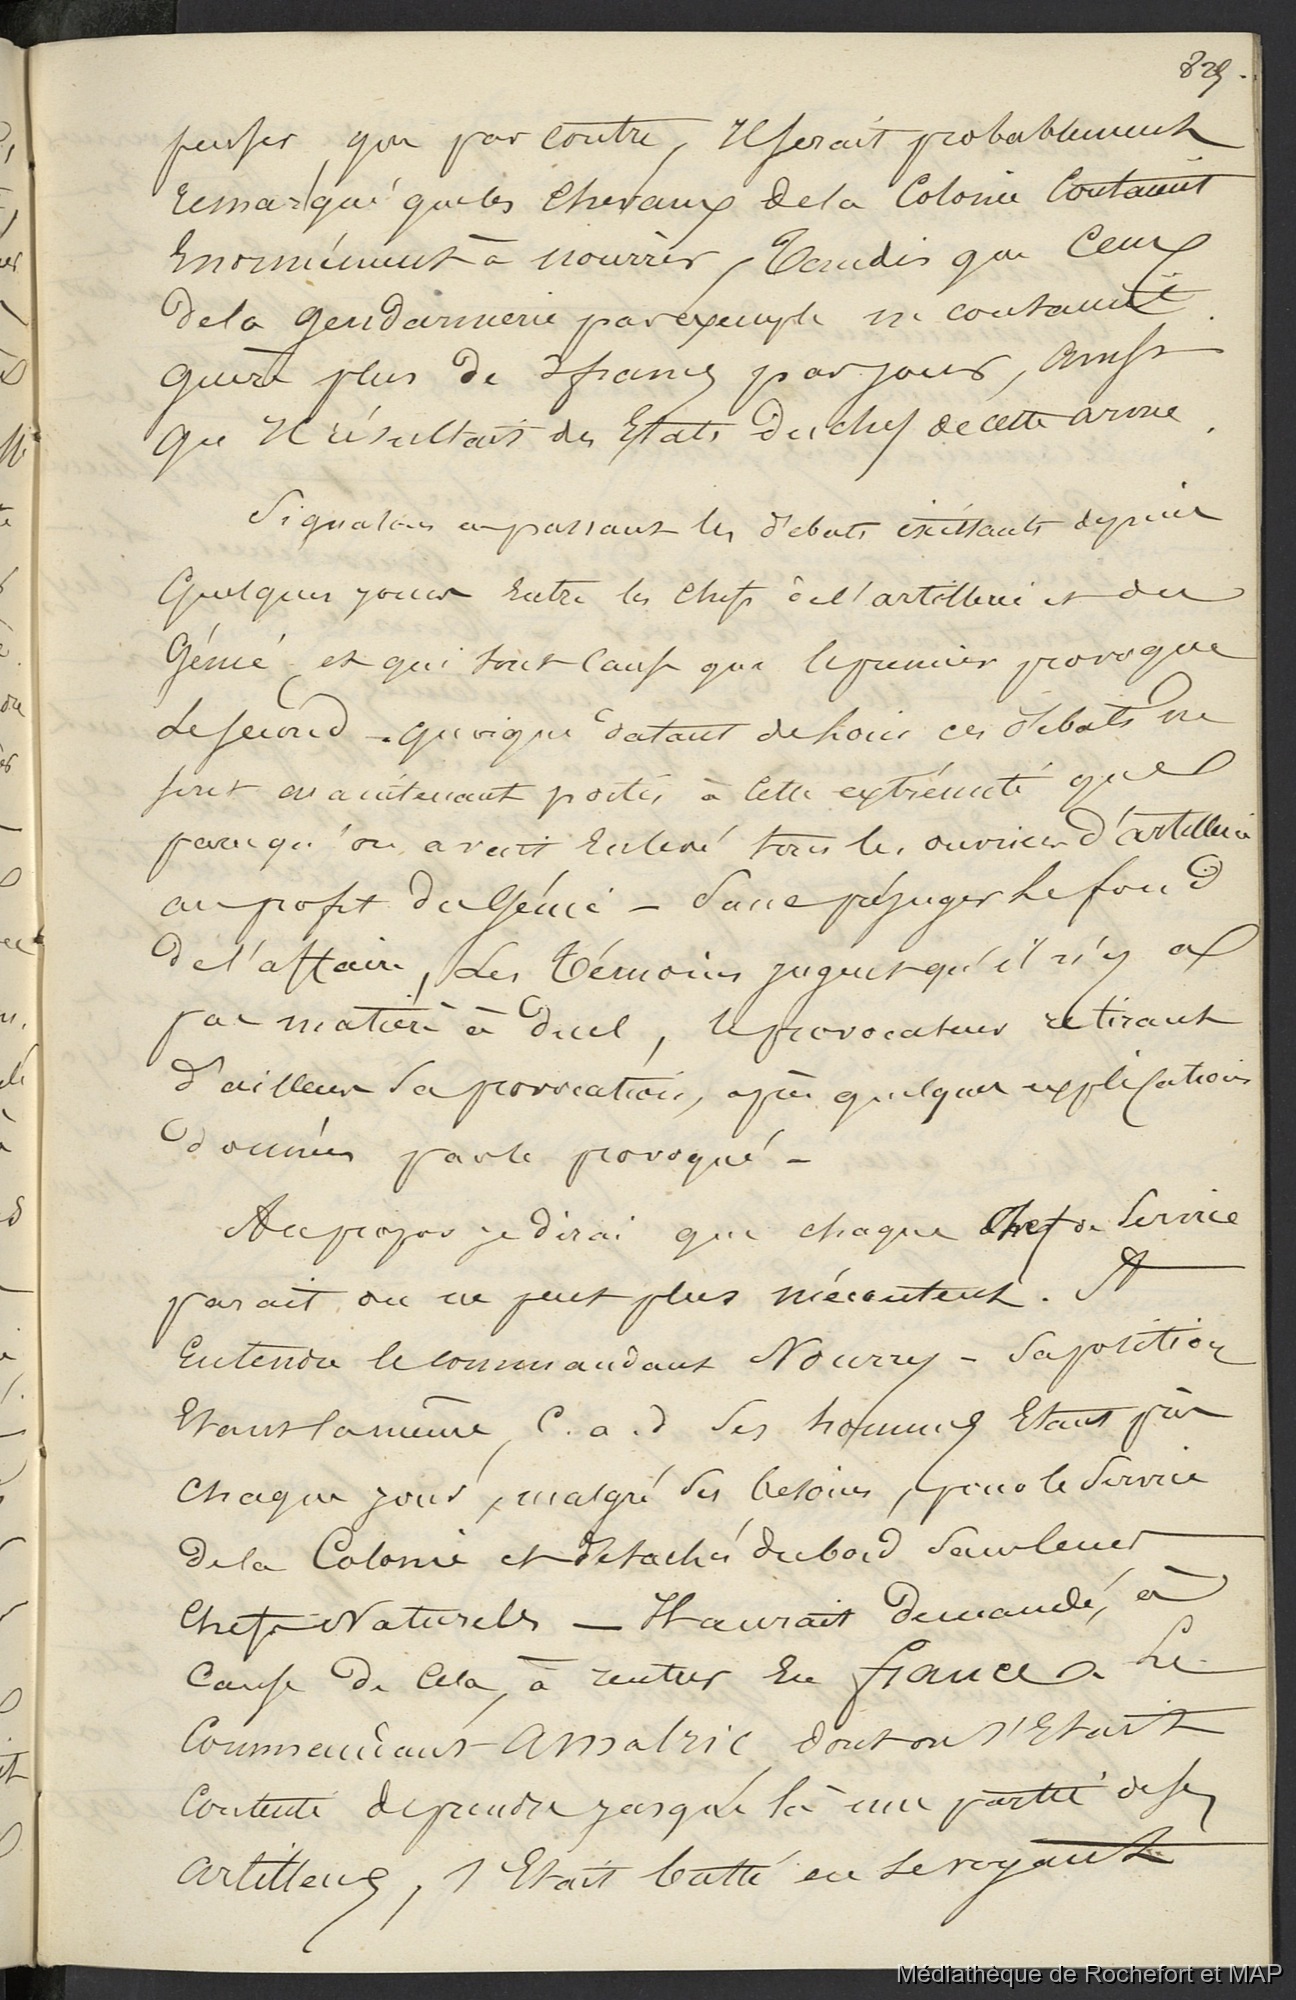 829.
penser, que par contre, Il serait probablement
remarqué que les chevaux de la Colonie Coutaient
Enormément à nourrir, Tandis que Ceux
de la gendarmerie par exemple ne coutaient
guère plus de 2 francs par jour, ainsi
que Il résultait des Etats du chef de cette arme.
Signalons en passant les débats existants depuis
Quelques jours Entre les chefs de l'artillerie et du
Génie, et qui sont cause que le premier provoque
Le second - quoique datant de loin ces débats ne
sont maintenant portés à cette extrémité que
parcequ'on avait Enlevé tous les ouvriers d'artillerie
au profit du Génie - Sans préjuger Le fond
De l'affaire, Les Témoins jugent qu'il n'y a
pas matière à Duel, le provocateur retirant
d'ailleurs sa provocation, après quelques explications
données par le provoqué -
A ce propos je dirai que chaque Chef de Service
parait on ne peut plus mécontent. A
Entendre le commandant Nourry - Sa position
Etant la même, C.a.d Ses hommes Etant pris
chaque jour, malgré Ses besoins, pour le Service
de la Colonie et détachés du bord Sans leurs
Chefs Naturels - Il aurait Demandé, à
Cause de Cela, à rentrer En france. Le
Commandant Assalric dont on s'Etait
Contenté de prendre jusque là une partie de ses
artilleurs, s'Etait butté en se voyant
Médiathèque de Rochefort et MAP